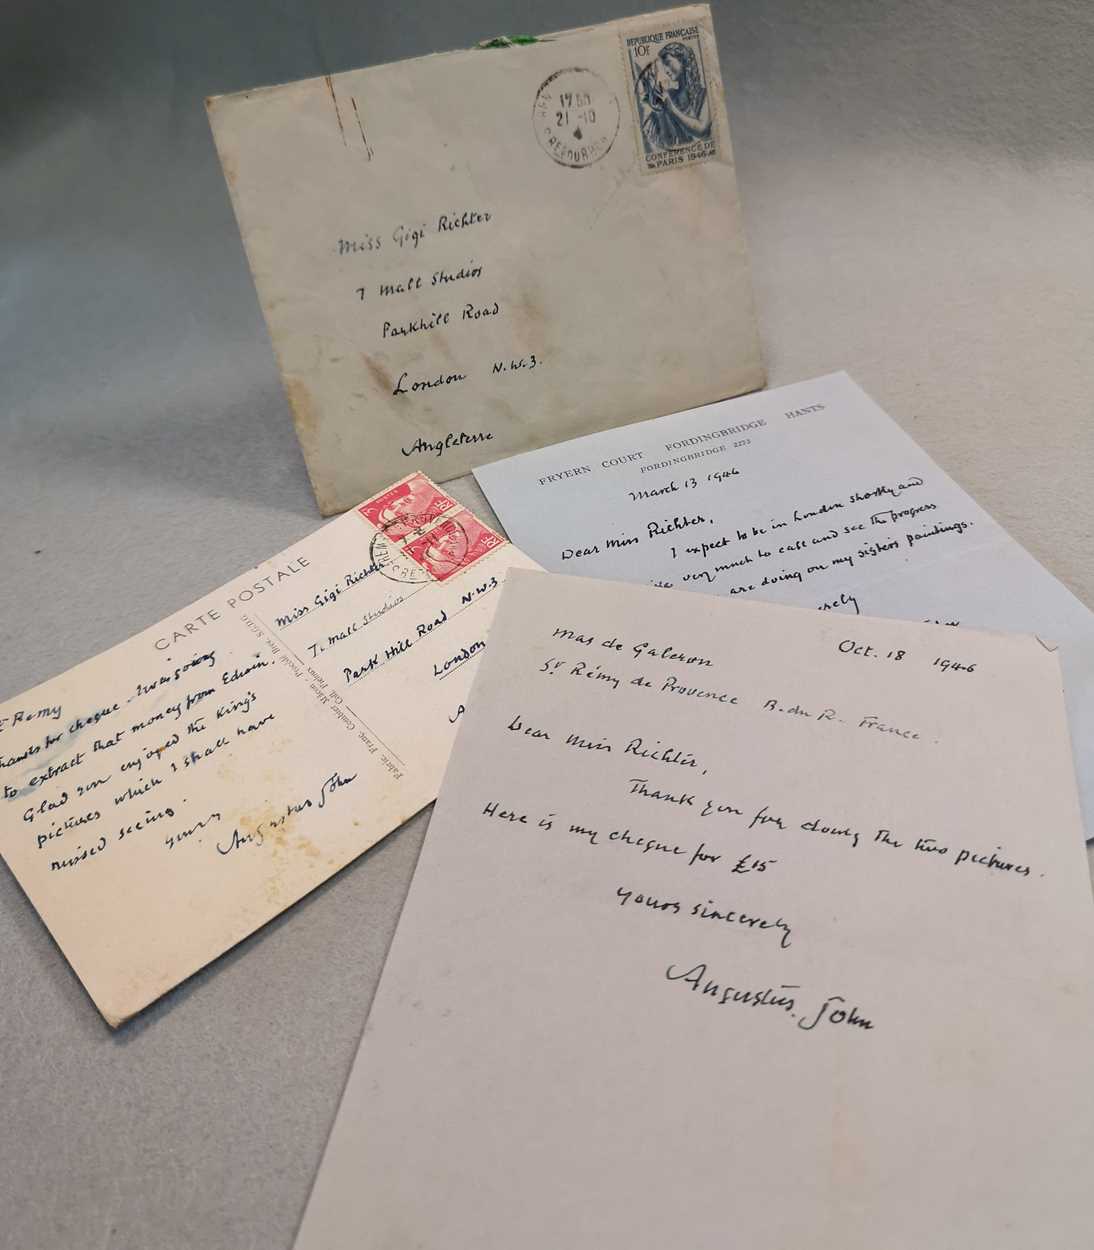 REPUBLIQUE FRANCAISE
POSTES
10F
CONFÉRENCE DE
PARIS 1946
21-10
Miss Gigi Richter
7 Mall Studios
Parkhill Road
London N.W.3.
Angleterre
FRYERN COURT FORDINGBRIDGE HANTS
FORDINGBRIDGE 2222
March 13 1946
Dear Miss Richter,
I expect to be in London shortly and
very much to call and see the progress
are doing on my sister's paintings.
CARTE POSTALE
Remy
Thanks for cheque. I was going
to extract that money from Edwin.
Glad you enjoyed the King's
pictures which I shall have
missed seeing.
Yours
Augustus John
Miss Gigi Richter
7. Mall Studios
Park Hill Road N.W.3
London
Mas de Galeron
St Rémy de Provence B. du R. France.
Oct. 18 1946
Dear Miss Richter,
Thank you for doing the two pictures.
Here is my cheque for £15
Yours sincerely
Augustus John